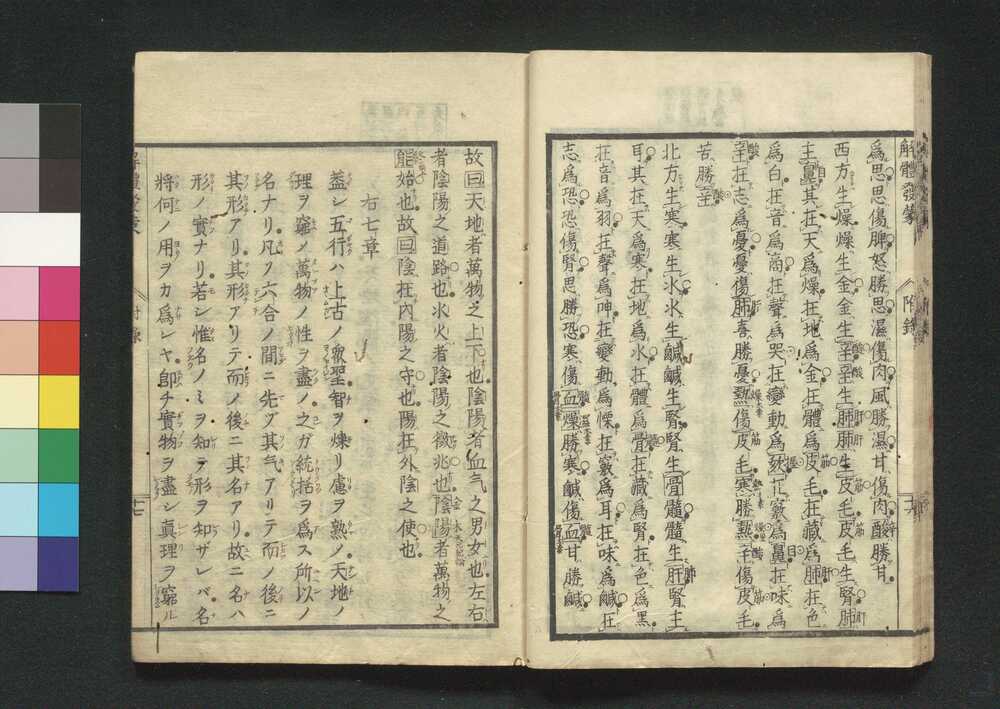 解體發蒙
附錄
爲思思傷脾怒勝思濕傷肉風勝濕甘傷肉酸勝甘
西方生燥燥生金金生辛辛生肺肺生皮毛皮毛生腎肺
主鼻其在天爲燥在地爲金在體爲皮毛在藏爲肺在色
爲白在音爲商在聲爲哭在變動爲欬在竅爲鼻在味爲
辛在志爲憂憂傷肺喜勝憂熱傷皮毛寒勝熱辛傷皮毛
苦勝辛
北方生寒寒生水水生鹹鹹生腎腎生骨髓髓生肝腎主
耳其在天爲寒在地爲水在體爲骨在藏爲腎在色爲黑
在音爲羽在聲爲呻在變動爲慄在竅爲耳在味爲鹹在
志爲恐恐傷腎思勝恐寒傷血燥勝寒鹹傷血甘勝鹹
故曰天地者萬物之上下也陰陽者血气之男女也左右
者陰陽之道路也水火者陰陽之徵兆也陰陽者萬物之
能始也故曰陰在內陽之守也陽在外陰之使也
右七章
蓋シ五行ハ上古ノ衆聖智ヲ煉リ慮ヲ熟ノ天地ノ
理ヲ窮メ萬物ノ性ヲ盡ノ之ガ統括ヲ爲ス所以ノ
名ナリ凡ソ六合ノ間ニ先ヅ其气アリテ而ノ後ニ
其形アリ其形アリテ而ノ後ニ其名アリ故ニ名ハ
形ノ實ナリ若シ惟名ノミヲ知ラ形ヲ知ザレバ名
將何ノ用ヲカ爲シヤ卽チ實物ヲ盡シ眞理ヲ窮ル
附錄
十七